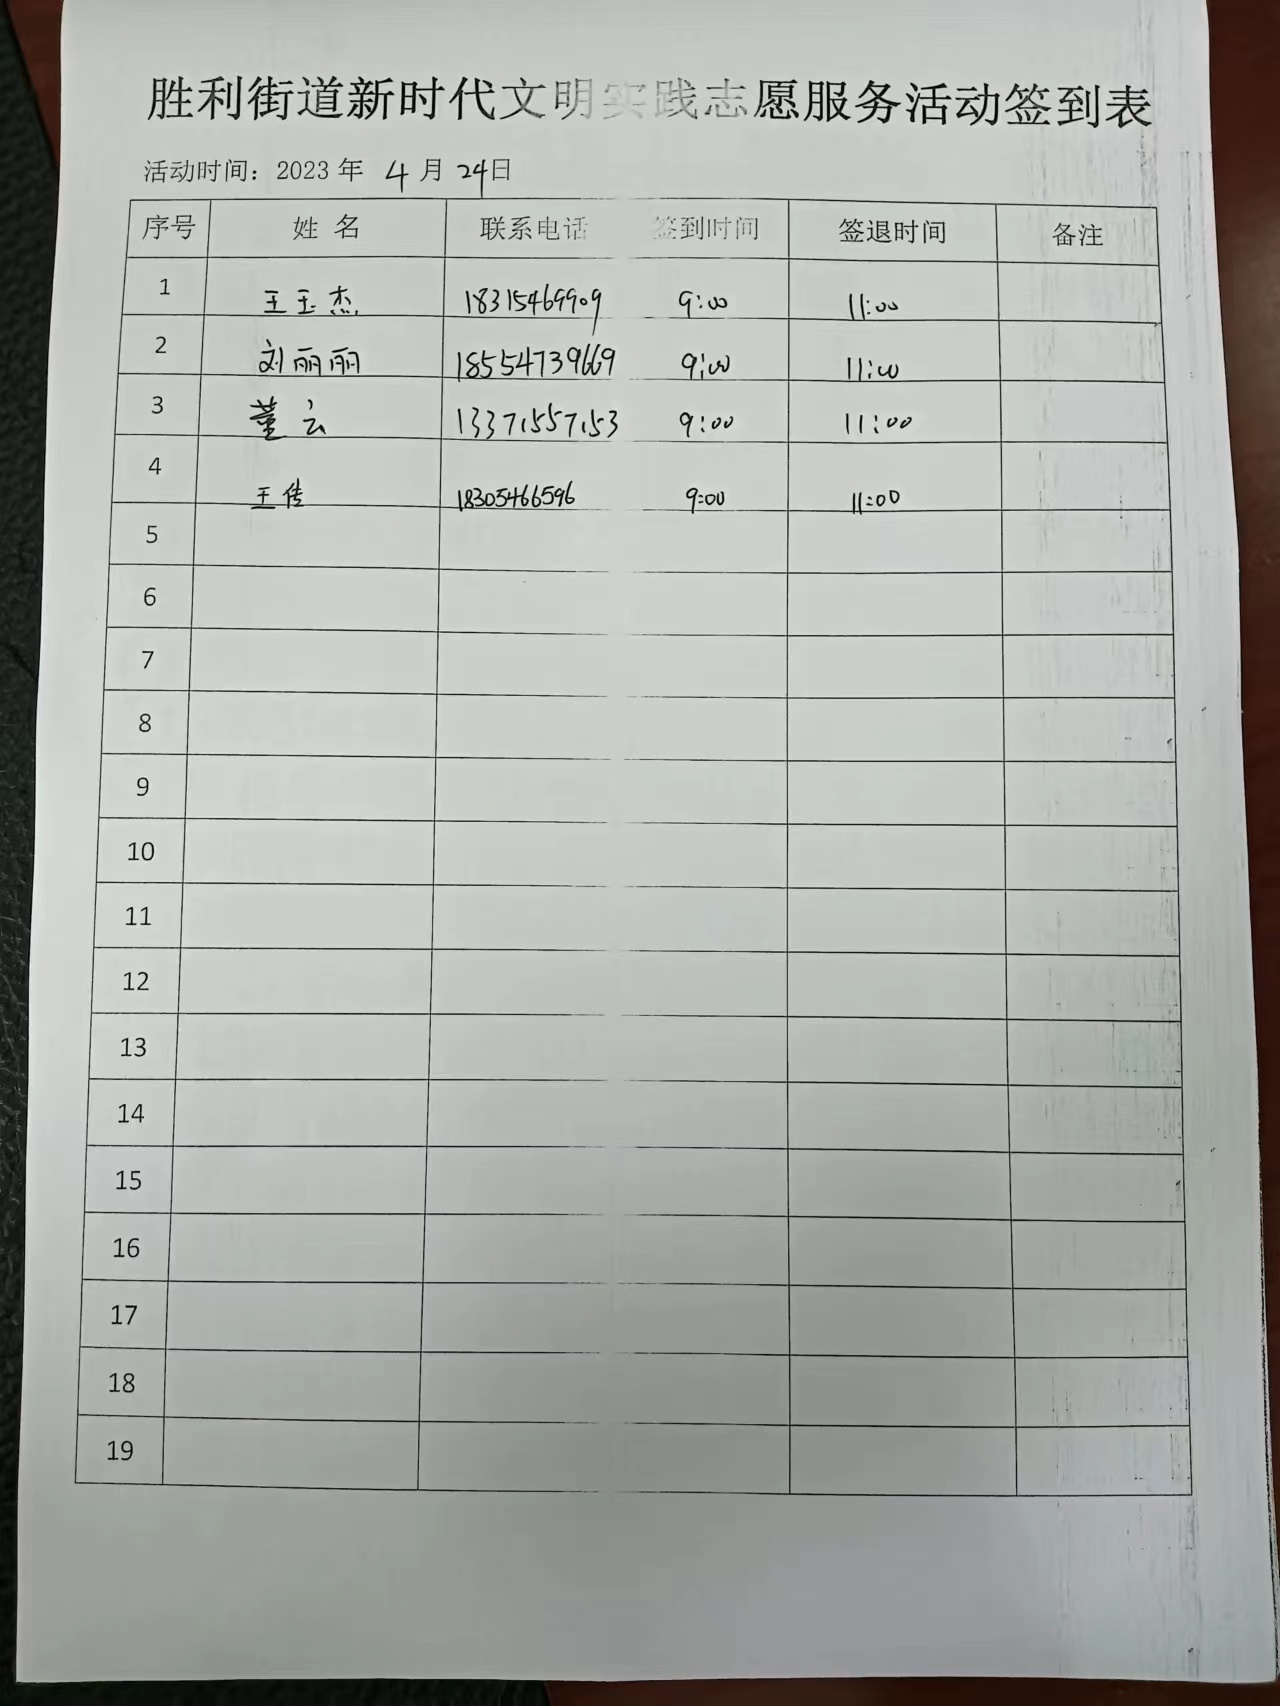 胜利街道新时代文明实践志愿服务活动签到表
活动时间：2023 年 4 月 24日
序号 姓 名 联系电话 签到时间 签退时间 备注
1 王玉杰 18315469909 9:00 11:00
2 刘丽丽 18554739669 9:00 11:00
3 董云 13371557153 9:00 11:00
4 王传 18305466596 9:00 11:00
5
6
7
8
9
10
11
12
13
14
15
16
17
18
19